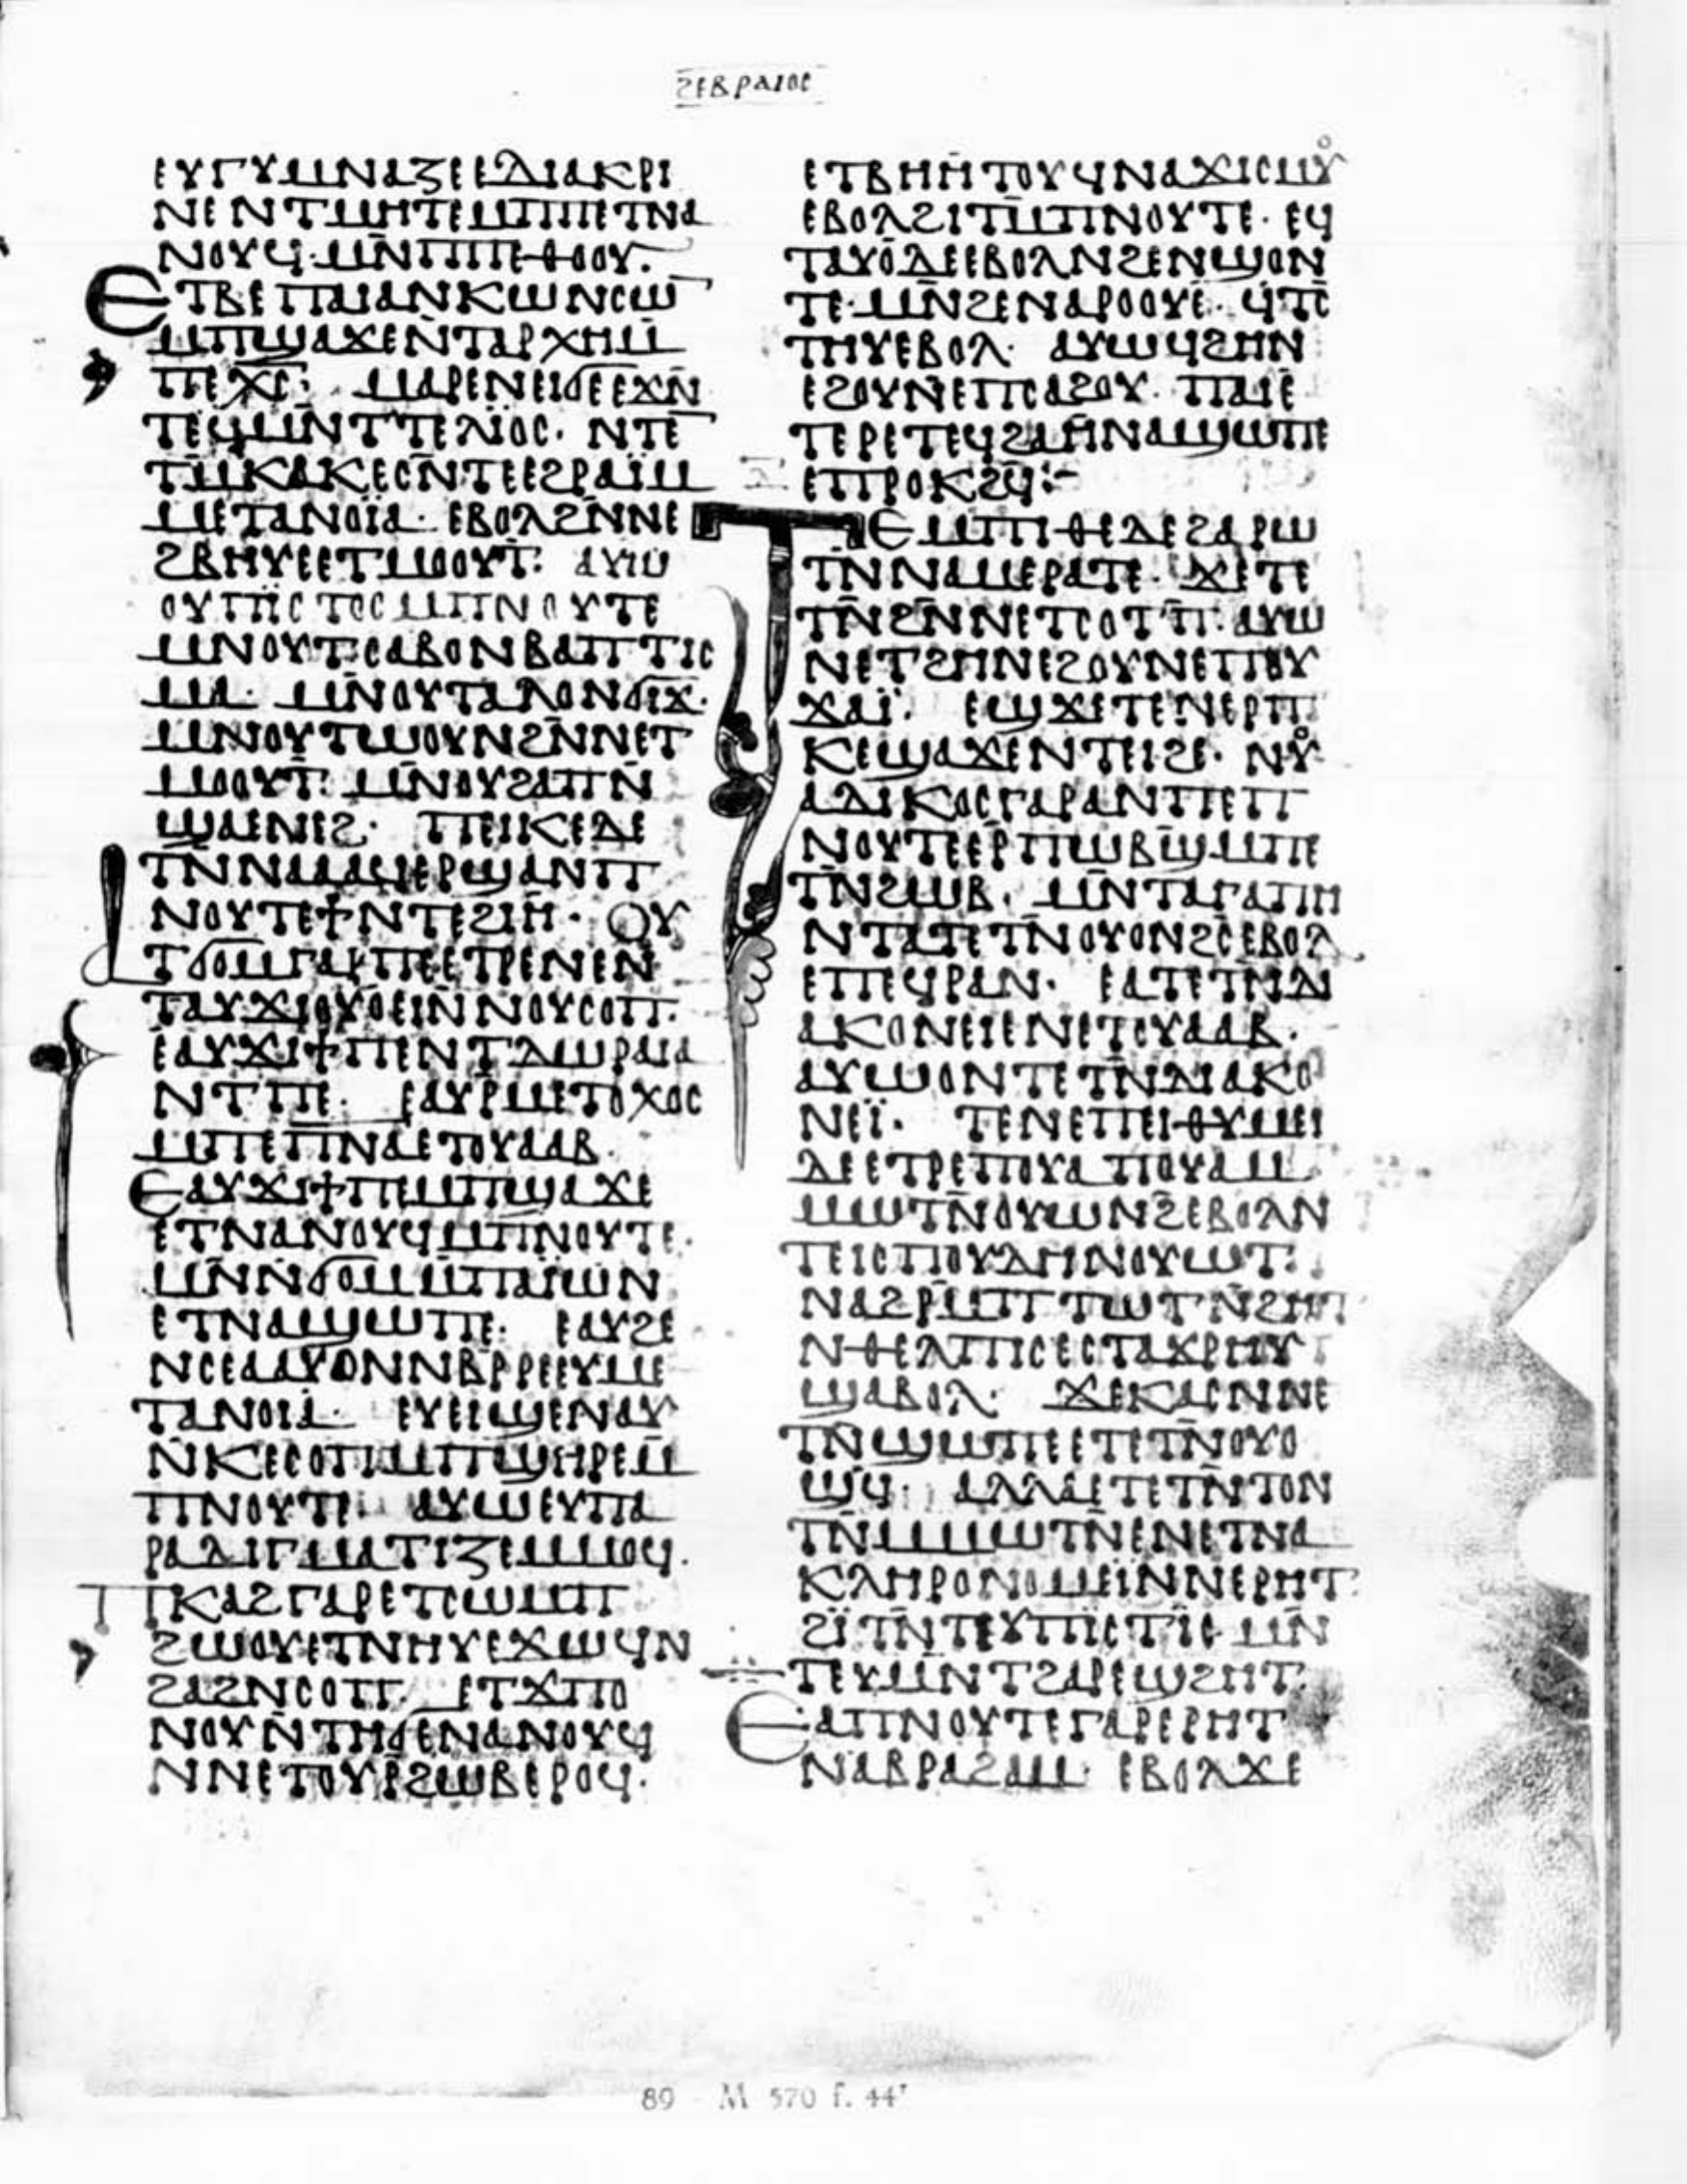 ϩⲉⲃⲣⲁⲓⲟⲥ
ⲉⲩⲅⲩⲙⲛⲁⲍⲉⲉⲇⲓⲁⲕⲣⲓ
ⲛⲉⲛⲧⲙⲏⲧⲉⲙ̅ⲡⲡⲉⲧⲛⲁ
ⲛⲟⲩϥ·ⲙⲛ̅ⲡⲡⲉⲑⲟⲟⲩ·
ⲉⲧⲃⲉⲡⲁⲓⲁⲛⲕⲱⲛⲥⲱ̅
ⲙⲡϣⲁϫⲉⲛ̅ⲧⲁⲣⲭⲏⲙ̅
ⲡⲉⲭ̅ⲥ̅· ⲙⲁⲣⲉⲛⲉⲓϭⲉⲉϫⲛ̅
ⲧⲉϥⲙⲛ̅ⲧⲧⲉⲗⲓ̈ⲟⲥ· ⲛⲧⲉ̅
ⲧⲙ̅ⲕⲁⲕⲉⲥⲛ̅ⲧⲉⲉϩⲣⲁⲓ̈ⲙ
ⲙⲉⲧⲁⲛⲟⲓ̈ⲁ· ⲉⲃⲟⲗϩⲛ̅ⲛⲉ
ϩⲃⲏⲩⲉⲉⲧⲙⲟⲟⲩⲧ· ⲁⲩⲱ
ⲟⲩⲡⲓ̈ⲥⲧⲟⲥⲙⲡⲛⲟⲩⲧⲉ
ⲙⲛⲟⲩⲧⲥⲁⲃⲟⲛⲃⲁⲡⲧⲓⲥ
ⲙⲁ· ⲙⲛ̅ⲟⲩⲧⲁⲗⲟⲛϭⲓϫ·
ⲙⲛⲟⲩⲧⲱⲟⲩⲛϩⲛ̅ⲛⲉⲧ
ⲙⲟⲟⲩⲧ· ⲙⲛ̅ⲟⲩϩⲁⲡⲛ̅
ϣⲁⲉⲛⲉϩ· ⲡⲉⲓⲕⲉⲇⲉ
ⲧⲛ̅ⲛⲁⲁⲁϥⲉⲣϣⲁⲛⲡ
ⲛⲟⲩⲧⲉϯⲛⲧⲉϩⲓⲏ· ⲟⲩ
ⲁⲧϭⲟⲙⲅⲁⲣⲡⲉⲉⲧⲣⲉⲛⲉⲛ
ⲧⲁⲩϫⲓⲟⲩⲟⲉⲓⲛ̅ⲛⲟⲩⲥⲟⲡ·
ⲉⲁⲩϫⲓϯⲡⲉⲛⲧⲇⲱⲣⲁⲓⲁ
ⲛⲧⲡⲉ· ⲉⲁⲩⲣⲙⲉⲧⲟⲭⲟⲥ
ⲙⲡⲉⲡ̅ⲛ̅ⲁⲉⲧⲟⲩⲁⲁⲃ·
ⲉⲁⲩϫⲓϯⲡⲉⲙⲡϣⲁϫⲉ
ⲉⲧⲛⲁⲛⲟⲩϥⲙ̅ⲡⲛⲟⲩⲧⲉ·
ⲙⲛ̅ⲛϭⲟⲙⲙ̅ⲡⲁⲓ̈ⲱⲛ
ⲉⲧⲛⲁϣⲱⲡⲉ· ⲉⲁⲩϩⲉ
ⲛⲥⲉⲁⲁⲩⲟⲛⲛⲃ̅ⲣⲣⲉⲉⲩⲙⲉ
ⲧⲁⲛⲟⲓⲁ· ⲉⲩⲉⲓϣⲉⲛⲁⲩ
ⲛ̅ⲕⲉⲥⲟⲡⲙⲡϣⲏⲣⲉⲙ̅
ⲡⲛⲟⲩⲧⲉ· ⲁⲩⲱⲉⲩⲡⲁ
ⲣⲁⲇⲓⲅⲙⲁⲧⲓⲍⲉⲙⲙⲟϥ·
ⲡⲕⲁϩⲅⲁⲣⲉⲧⲥⲱⲙⲡ
ϩⲱⲟⲩⲉⲧⲛⲏⲩⲉϫⲱϥⲛ
ϩⲁϩⲛⲥⲟⲡ· ⲉⲧϫⲡⲟ
ⲛⲟⲩⲛ̅ⲧⲏϭⲉⲛⲁⲛⲟⲩϥ
ⲛⲛⲉⲧⲟⲩⲣ̅ϩⲱⲃⲉⲣⲟϥ·
ⲉⲧⲃⲏⲏⲧⲟⲩϥⲛⲁϫⲓⲥⲙⲟⲩ
ⲉⲃⲟⲗϩⲓⲧⲙ̅ⲡⲛⲟⲩⲧⲉ· ⲉϥ
ⲧⲁⲩⲟ̅ⲇⲉⲉⲃⲟⲗⲛϩⲉⲛϣⲟⲛ
ⲧⲉ·ⲙⲛ̅ϩⲉⲛⲁⲣⲟⲟⲩⲉ· ϥⲧⲥ̅
ⲧⲏⲩⲉⲃⲟⲗ· ⲁⲩⲱϥϩⲏⲛ
ⲉϩⲟⲩⲛⲉⲡⲥⲁϩⲟⲩ· ⲡⲁⲓⲉ̅
ⲧⲉⲣⲉⲧⲉϥϩⲁⲏⲛⲁϣⲱⲡⲉ
ⲉⲡⲣⲟⲕϩϥ̅:⁻
ⲧⲉⲙⲡⲓⲑⲉⲇⲉϩⲁⲣⲱ
ⲧⲛ̅ⲛⲁⲙⲉⲣⲁⲧⲉ· ϫⲉⲧⲉ
ⲧⲛ̅ϩⲛ̅ⲛⲉⲧⲥⲟⲧⲡ̅· ⲁⲩⲱ
ⲛⲉⲧϩⲏⲛⲉϩⲟⲩⲛⲉⲡⲟⲩ
ϫⲁⲓ̈· ⲉϣϫⲉⲧⲉⲛⲉⲣⲡ
ⲕⲉϣⲁϫⲉⲛⲧⲉⲓϩⲉ· ⲛⲟⲩ
ⲁⲇⲓⲕⲟⲥⲅⲁⲣⲁⲛⲡⲉⲡ
ⲛⲟⲩⲧⲉⲉⲣ̅ⲡⲱⲃϣ̅ⲙⲡⲉ
ⲧⲛ̅ϩⲱⲃ· ⲙⲛ̅ⲧⲁⲅⲁⲡⲏ
ⲛⲧⲁⲧⲉⲧⲛ̅ⲟⲩⲟⲛϩⲥ̅ⲉⲃⲟⲗ
ⲉⲡⲉϥⲣⲁⲛ· ⲉⲁⲧⲉⲧⲛ̅ⲇⲓ
ⲁⲕⲟⲛⲉⲓⲉⲛⲉⲧⲟⲩⲁⲁⲃ·
ⲁⲩⲱⲟⲛⲧⲉⲧⲛ̅ⲇⲓⲁⲕⲟ
ⲛⲉⲓ̈· ⲧⲉⲛⲉⲡⲉⲓⲑⲩⲙⲉⲓ
ⲇⲉⲉⲧⲣⲉⲡⲟⲩⲁⲡⲟⲩⲁⲙ
ⲙⲱⲧⲛ̅ⲟⲩⲱⲛϩ̅ⲉⲃⲟⲗⲛ
ⲧⲉⲓⲥⲡⲟⲩⲇⲏⲛⲟⲩⲱⲧ·
ⲛⲁϩⲣⲙ̅ⲡⲧⲱⲧⲛ̅ϩⲏⲧ
ⲛⲑⲉⲗⲡⲓⲥⲉⲥⲧⲁϫⲣⲏⲩ
ϣⲁⲃⲟⲗ· ϫⲉⲕⲁⲥⲛⲛⲉ
ⲧⲛ̅ϣⲱⲡⲉⲉⲧⲉⲧⲛ̅ⲟⲩⲟ
ϣϥ̅· ⲁⲗⲗⲁⲉⲧⲉⲧⲛ̅ⲧⲟⲛ
ⲧⲛ̅ⲙⲙⲱⲧⲛ̅ⲉⲛⲉⲧⲛⲁ
ⲕⲗⲏⲣⲟⲛⲟⲙⲉⲓ̈ⲛⲛⲉⲣⲏⲧ·
ϩⲓ̈ⲧⲛ̅ⲧⲉⲩⲡⲓ̈ⲥⲧⲓ̈ⲥ ⲙⲛ̅
ⲧⲉⲩⲙⲛ̅ⲧϩⲁⲣⲉϣϩⲏⲧ·
ⲉⲁⲡⲛⲟⲩⲧⲉⲅⲁⲣⲉⲣⲏⲧ
ⲛⲁⲃⲣⲁϩⲁⲙ· ⲉⲃⲟⲗϫⲉ
89 - M 570 f. 44ʳ